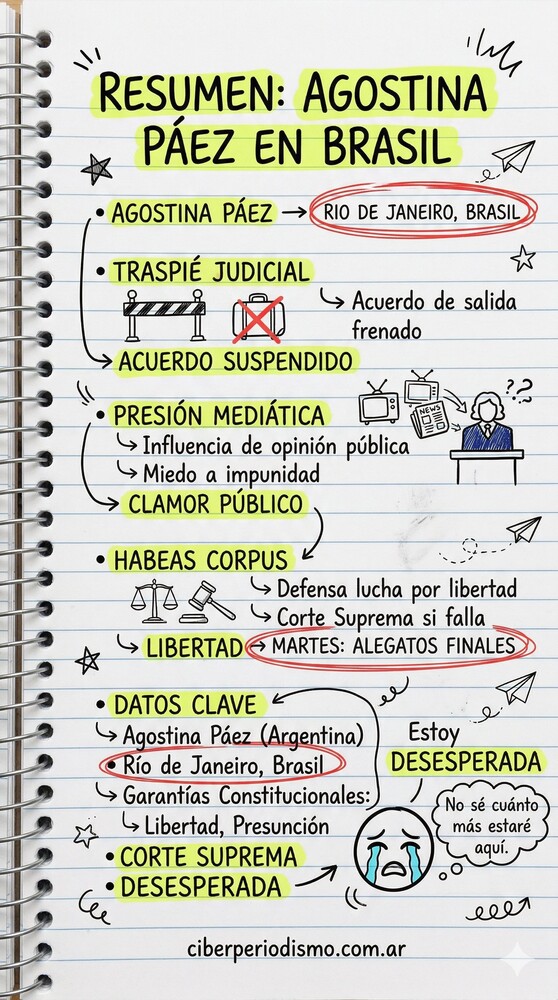 RESUMEN: AGOSTINA
PÁEZ EN BRASIL
• AGOSTINA PÁEZ → RIO DE JANEIRO, BRASIL
• TRASPIÉ JUDICIAL
Acuerdo de salida
frenado
ACUERDO SUSPENDIDO
• PRESIÓN MEDIÁTICA
NEWS
???
Influencia de opinión pública
Miedo a impunidad
CLAMOR PÚBLICO
• HABEAS CORPUS
Defensa lucha por libertad
Corte Suprema si falla
LIBERTAD → MARTES: ALEGATOS FINALES
• DATOS CLAVE
Agostina Páez (Argentina)
• Río de Janeiro, Brasil
Garantías Constitucionales:
Libertad, Presunción
• CORTE SUPREMA
• DESESPERADA
Estoy
DESESPERADA
No sé cuánto
más estaré
aquí.
ciberperiodismo.com.ar